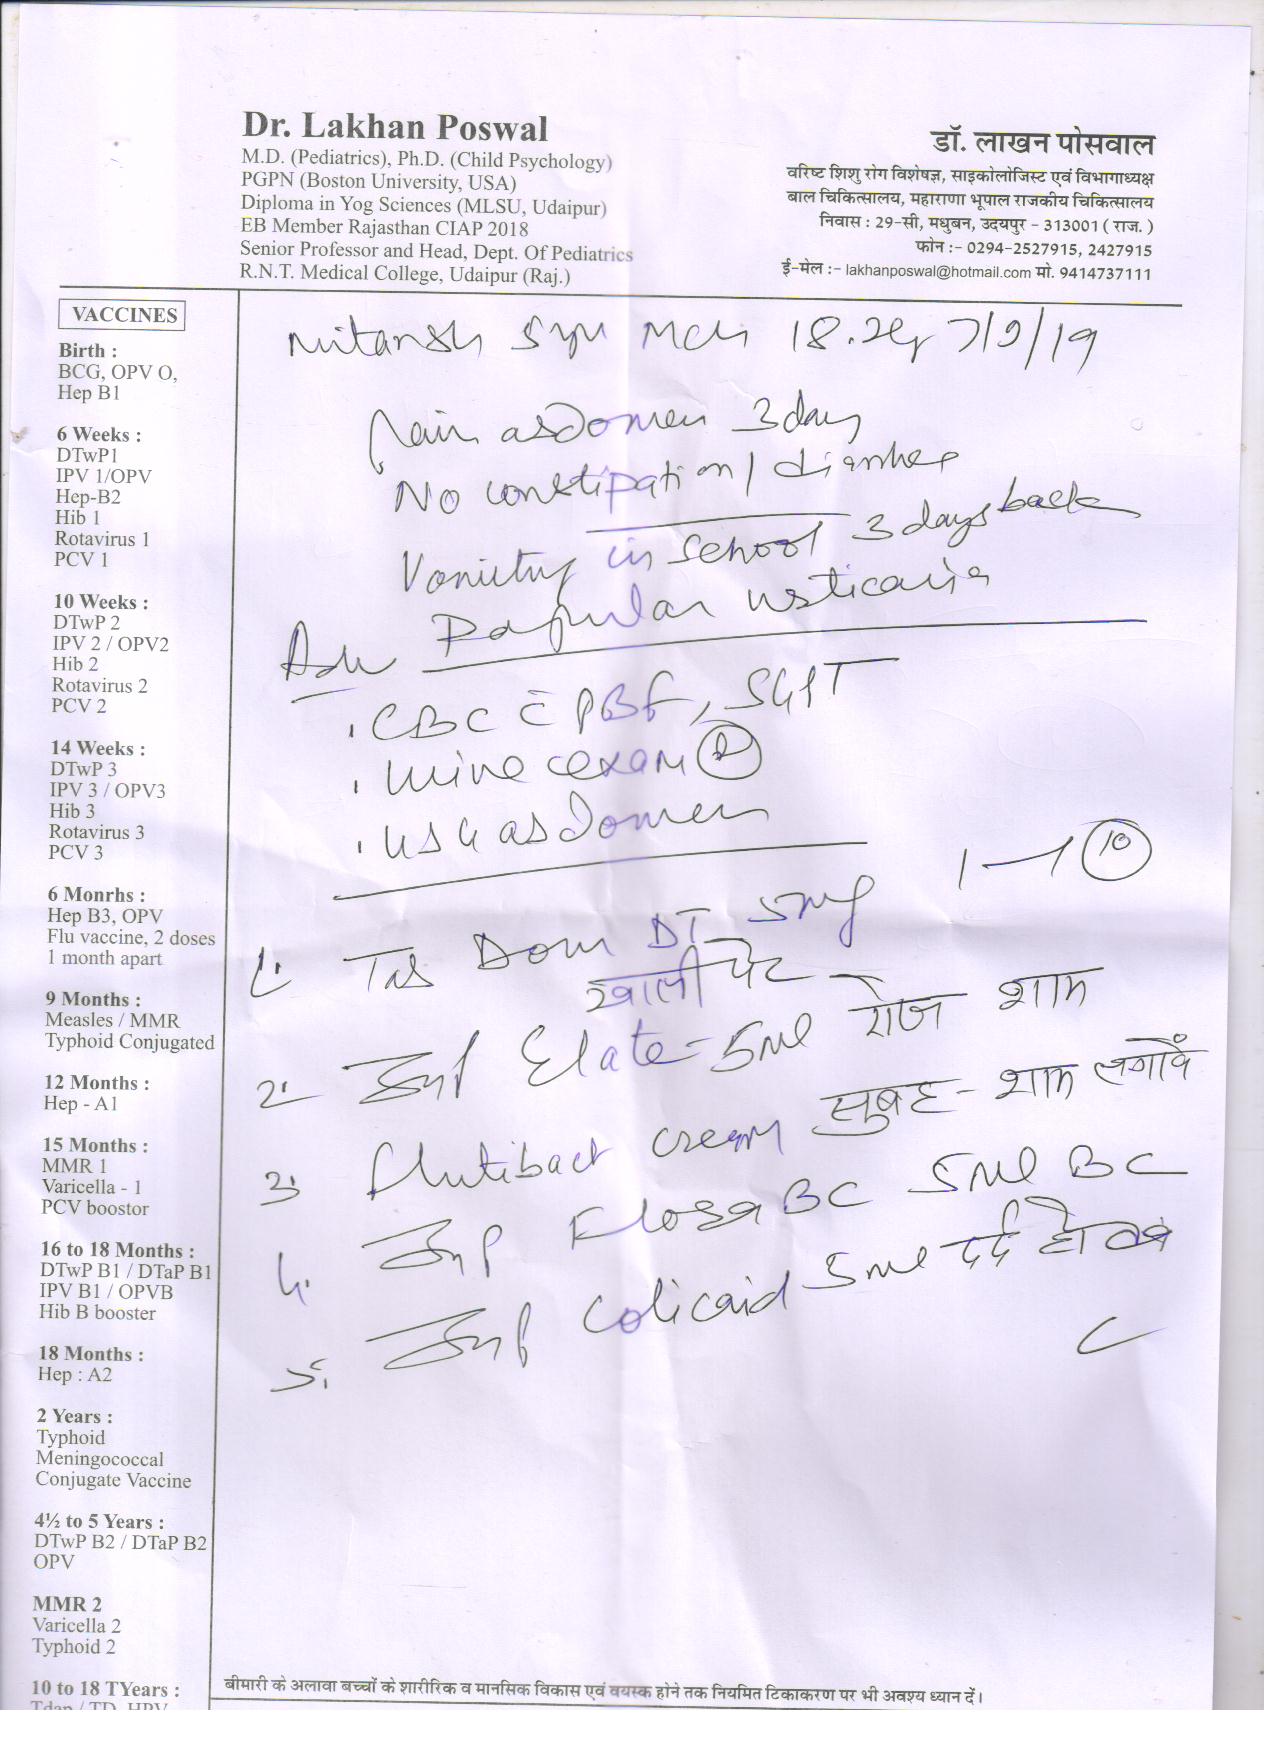 Dr. Lakhan Poswal
M.D. (Pediatrics), Ph.D. (Child Psychology)
PGPN (Boston University, USA)
Diploma in Yog Sciences (MLSU, Udaipur)
EB Member Rajasthan CIAP 2018
Senior Professor and Head, Dept. Of Pediatrics
R.N.T. Medical College, Udaipur (Raj.)
डॉ. लाखन पोसवाल
वरिष्ट शिशु रोग विशेषज्ञ, साइकोलोजिस्ट एवं विभागाध्यक्ष
बाल चिकित्सालय, महाराणा भूपाल राजकीय चिकित्सालय
निवास : 29-सी, मधुबन, उदयपुर - 313001 ( राज. )
फोन :- 0294-2527915, 2427915
ई-मेल :- lakhanposwal@hotmail.com मो. 9414737111
VACCINES
Birth :
BCG, OPV O,
Hep B1
6 Weeks :
DTwP1
IPV 1/OPV
Hep-B2
Hib 1
Rotavirus 1
PCV 1
10 Weeks :
DTwP 2
IPV 2 / OPV2
Hib 2
Rotavirus 2
PCV 2
14 Weeks :
DTwP 3
IPV 3 / OPV3
Hib 3
Rotavirus 3
PCV 3
6 Monrhs :
Hep B3, OPV
Flu vaccine, 2 doses
1 month apart
9 Months :
Measles / MMR
Typhoid Conjugated
12 Months :
Hep - A1
15 Months :
MMR 1
Varicella - 1
PCV boostor
16 to 18 Months :
DTwP B1 / DTaP B1
IPV B1 / OPVB
Hib B booster
18 Months :
Hep : A2
2 Years :
Typhoid
Meningococcal
Conjugate Vaccine
4½ to 5 Years :
DTwP B2 / DTaP B2
OPV
MMR 2
Varicella 2
Typhoid 2
10 to 18 TYears :
Tdap / TD, HPV
Nitansh 5yr Mch 18.2kg 7/9/19
Pain abdomen 3 day
No constipation / diarrhea
Vomiting in school 3 days back
Papular urticaria
Adv
. CBC c̄ PBF, SGPT
. urine exam (R)
. USG abdomen
1. Tab Dom DT 5mg 1—1 (10)
खाली पेट
2. Syp Elate - 5ml रोज शाम
3. Flutibact cream सुबह - शाम लगावें
4. Syp Flora BC 5ml BC
5. Syp Colicaid 5ml दर्द हो तब
बीमारी के अलावा बच्चों के शारीरिक व मानसिक विकास एवं वयस्क होने तक नियमित टिकाकरण पर भी अवश्य ध्यान दें।